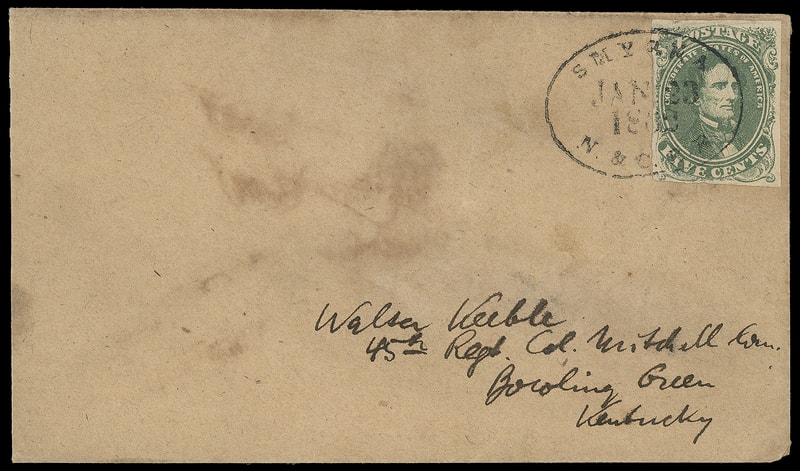 SMYRNA
JAN 23
186
N. & C.
POSTAGE
CONFEDERATE STATES OF AMERICA
FIVE CENTS
Walser Keeble
45th Regt. Col. Mitchell Com.
Bowling Green
Kentucky